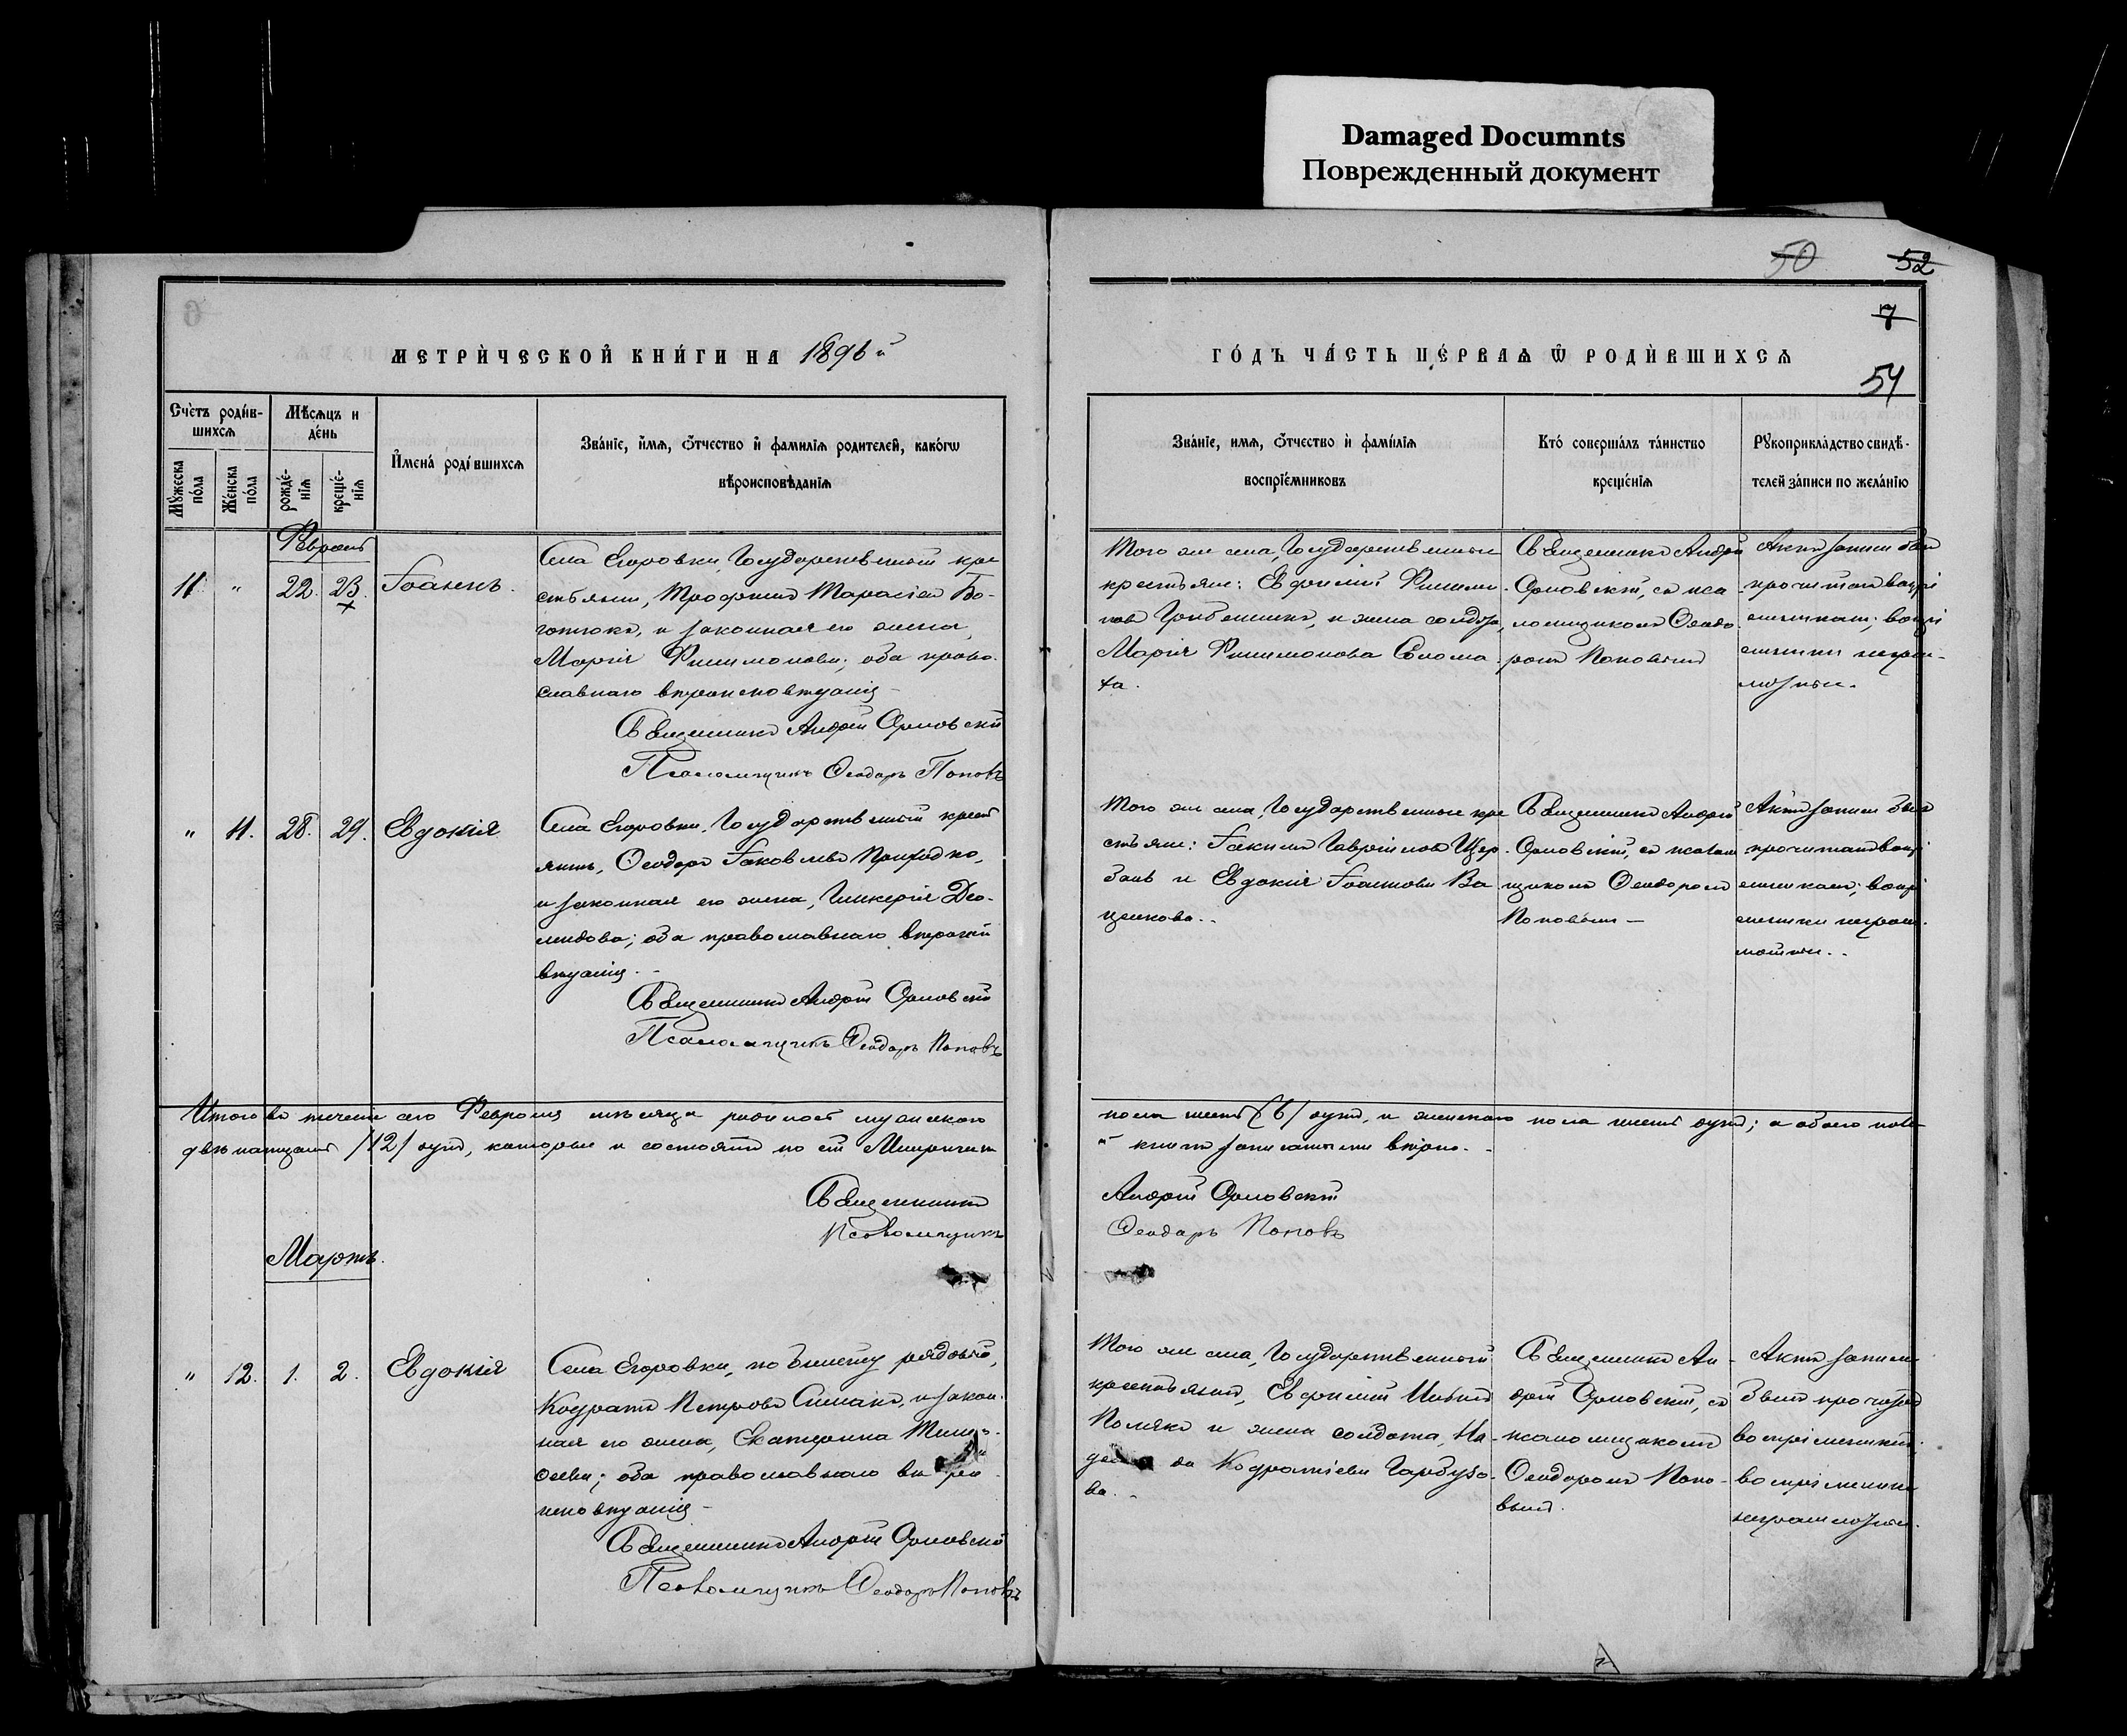 Damaged Documnts
Поврежденный документ
50 52
7
54
МЕТРИЧЕСКОЙ КНИГИ НА 1896 й
ГОДЪ ЧАСТЬ ПЕРВАЯ Ѡ РОДИВШИХСЯ
Счетъ родив-
шихся
Мѣсяцъ и
день
Мужеска пола
Женска пола
рожде-
нія
креще-
нія
Имена родившихся
Званіе, имя, отчество и фамилія родителей, какогѡ
вѣроисповѣданія
Званіе, имя, отчество и фамилія
воспріемниковъ
Кто совершалъ таинство
крещенія
Рукоприкладство свидѣ-
телей записи по желанію
Февраль
11. " 22. 23. Іоаннъ.
Села Егоровки, Государственный кре
стьянинъ, Трофимъ Тарасіевъ Бо-
и законная его жена,
Марія Филимонова; оба право-
славнаго вѣроисповѣданія
Священникъ Андрей Орловскій
Псаломщикъ Ѳеодоръ Поповъ
Того же села, Государственные
крестьяне: Евфимій Филимо-
новъ Гребенникъ, и жена солдата,
Марія Филимонова Солома-
ха.
Священникъ Андрей
Орловскій, съ пса-
ломщикомъ Ѳеодо-
ромъ Поповымъ
Актъ записи былъ
прочитанъ воспрі
емникамъ; воспрі
емники неграм-
мотны.
" 11. 28. 29. Евдокія
Села Егоровки, Государственный крест
янинъ, Ѳеодоръ Іаковлевъ Приходко,
и законная его жена, Гликерія Део-
мидова; оба православнаго вѣроиспо
вѣданія.
Священникъ Андрей Орловскій
Псаломщикъ Ѳеодоръ Поповъ
Того же села, Государственные кре
стьяне: Іакимъ Гавріиловъ Щер-
бань и Евдокія Іоаннова Ва
щенкова.
Священникъ Андрей
Орловскій, съ псалом
щикомъ Ѳеодоромъ
Поповымъ
Актъ записи былъ
прочитанъ воспрі
емникамъ; воспрі
емники неграм-
мотны.
Итого въ теченіи сего Февраля мѣсяца родилось мужскаго
пола шесть /6/ душъ, и женскаго пола шесть душъ; а обоего пола
двѣнатцать /12/ душъ, которые и состоятъ по сей Метричес
й книгѣ записанными вѣрно.
Священникъ Андрей Орловскій
Псаломщикъ Ѳеодоръ Поповъ
Мартъ.
" 12. 1. 2. Евдокія
Села Егоровки, по билету рядовый,
Кодратъ Петровъ Симакъ, и закон-
ная его жена, Екатерина Тимо-
ѳеева; оба православнаго вѣро
исповѣданія
Священникъ Андрей Орловскій
Псаломщикъ Ѳеодоръ Поповъ
Того же села, Государственный
крестьянинъ, Евфимій
Полякъ и жена солдата, На-
да Кодратіева Гарбузо-
ва.
Священникъ Ан-
дрей Орловскій, съ
псаломщикомъ
Ѳеодоромъ Попо-
вымъ.
Актъ записи
былъ прочитанъ
воспріемникамъ
воспріемники
неграммотны.